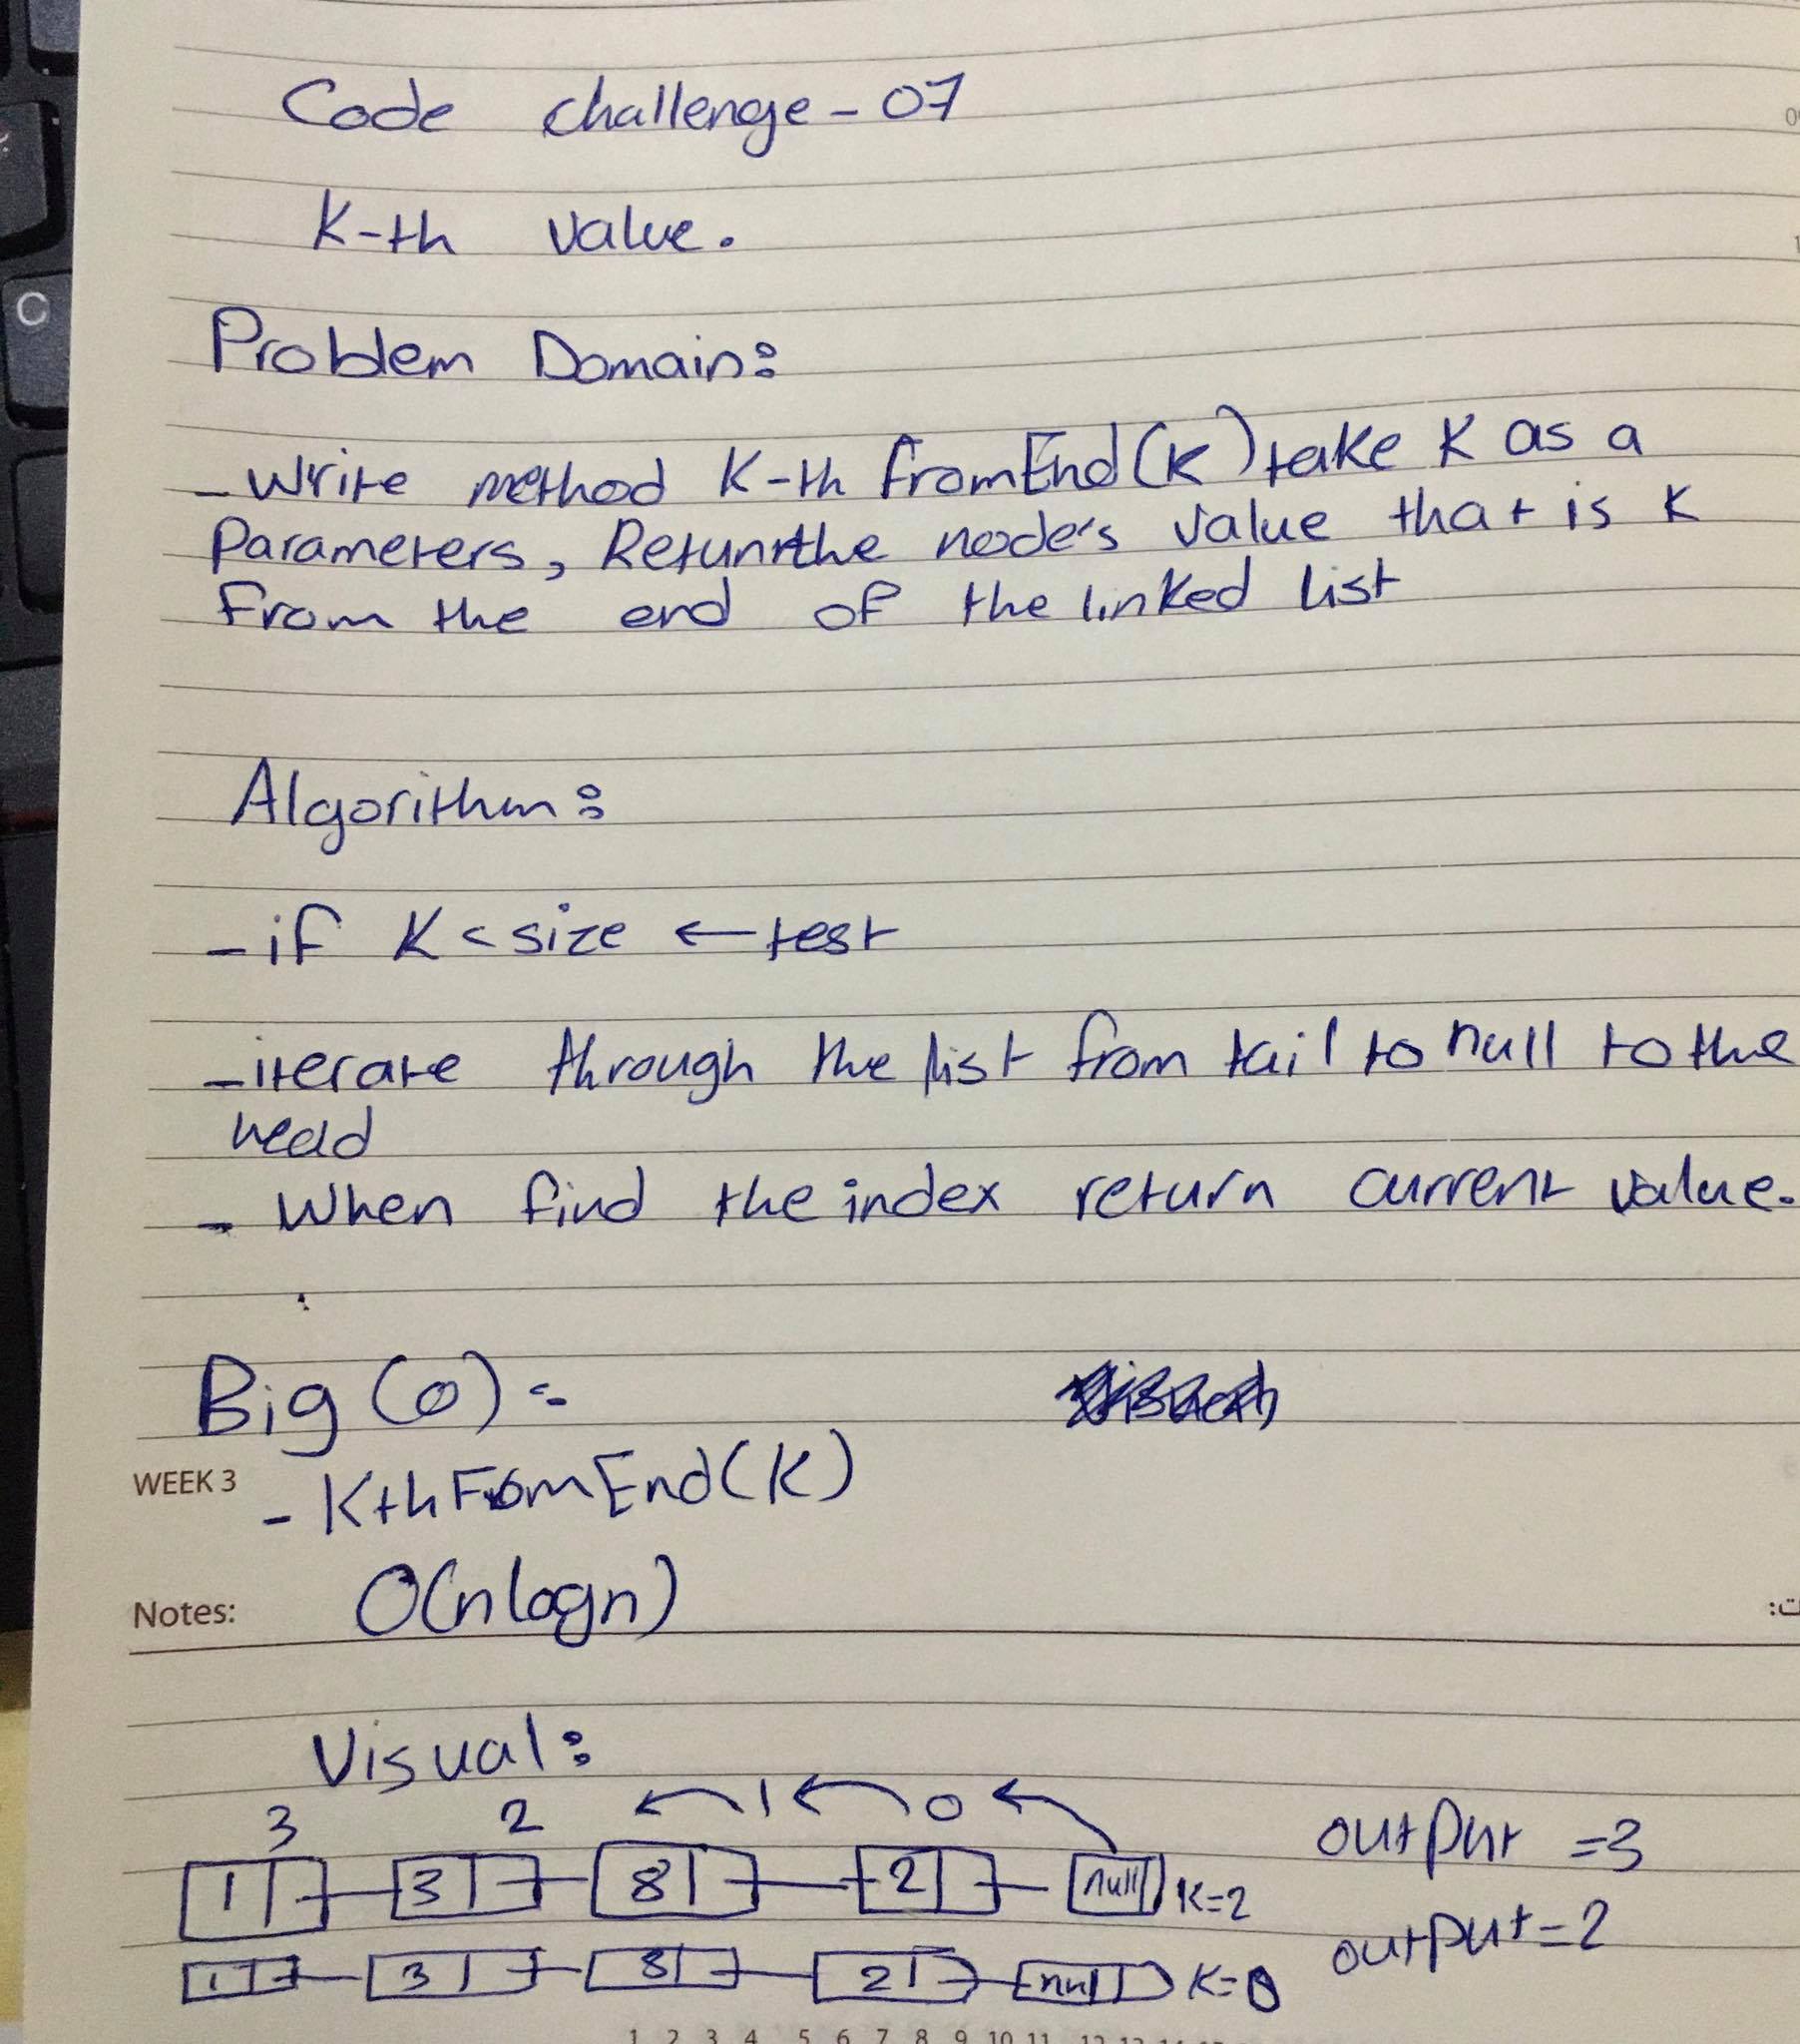 Code challenge - 07
K-th value.
Problem Domain:
- Write method K-th fromEnd(K) take K as a
Parameters, Retunrthe node's value that is K
From the end of the linked list
Algorithm:
- if K < size ← test
- iterate through the list from tail to null to the
head
- When find the index return current value.
Big (O) :-
WEEK 3
- KthFromEnd(K)
Notes:
O(n logn)
Visual:
3 2 1 0
1 3 8 2 null K=2 output =3
1 3 8 2 null K=0 output=2
1 2 3 4 5 6 7 8 9 10 11
C